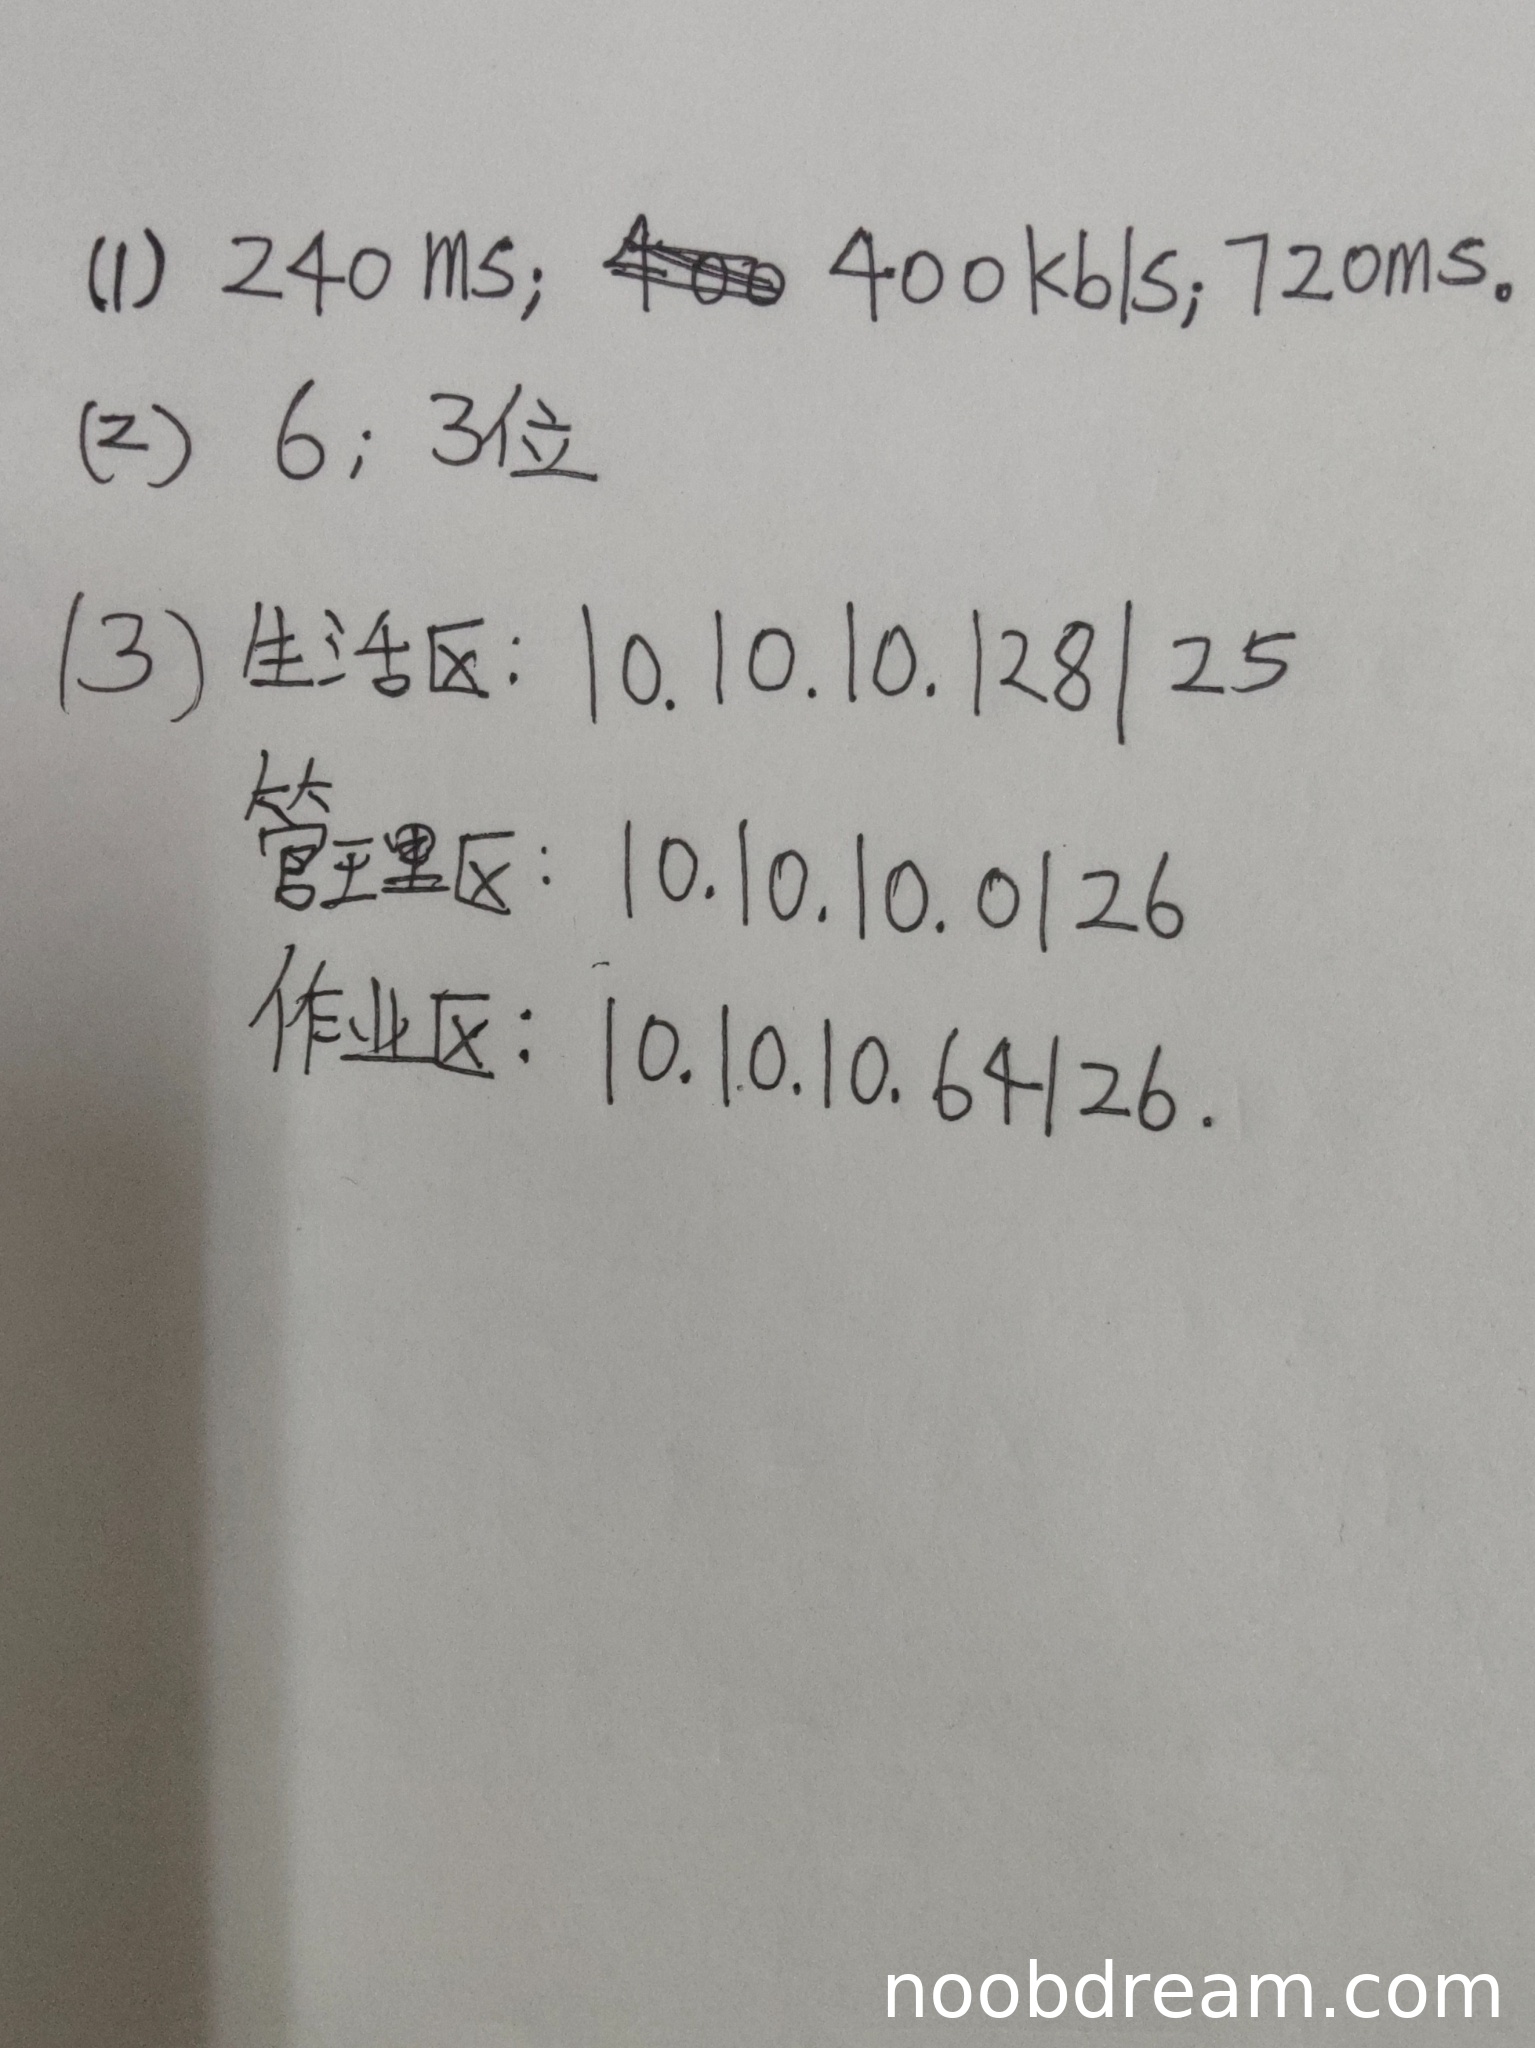 (1) 240ms; 400kb/s; 720ms.
(2) 6; 3位
(3) 生活区: 10.10.10.128/25
管理区: 10.10.10.0/26
作业区: 10.10.10.64/26.
noobdream.com